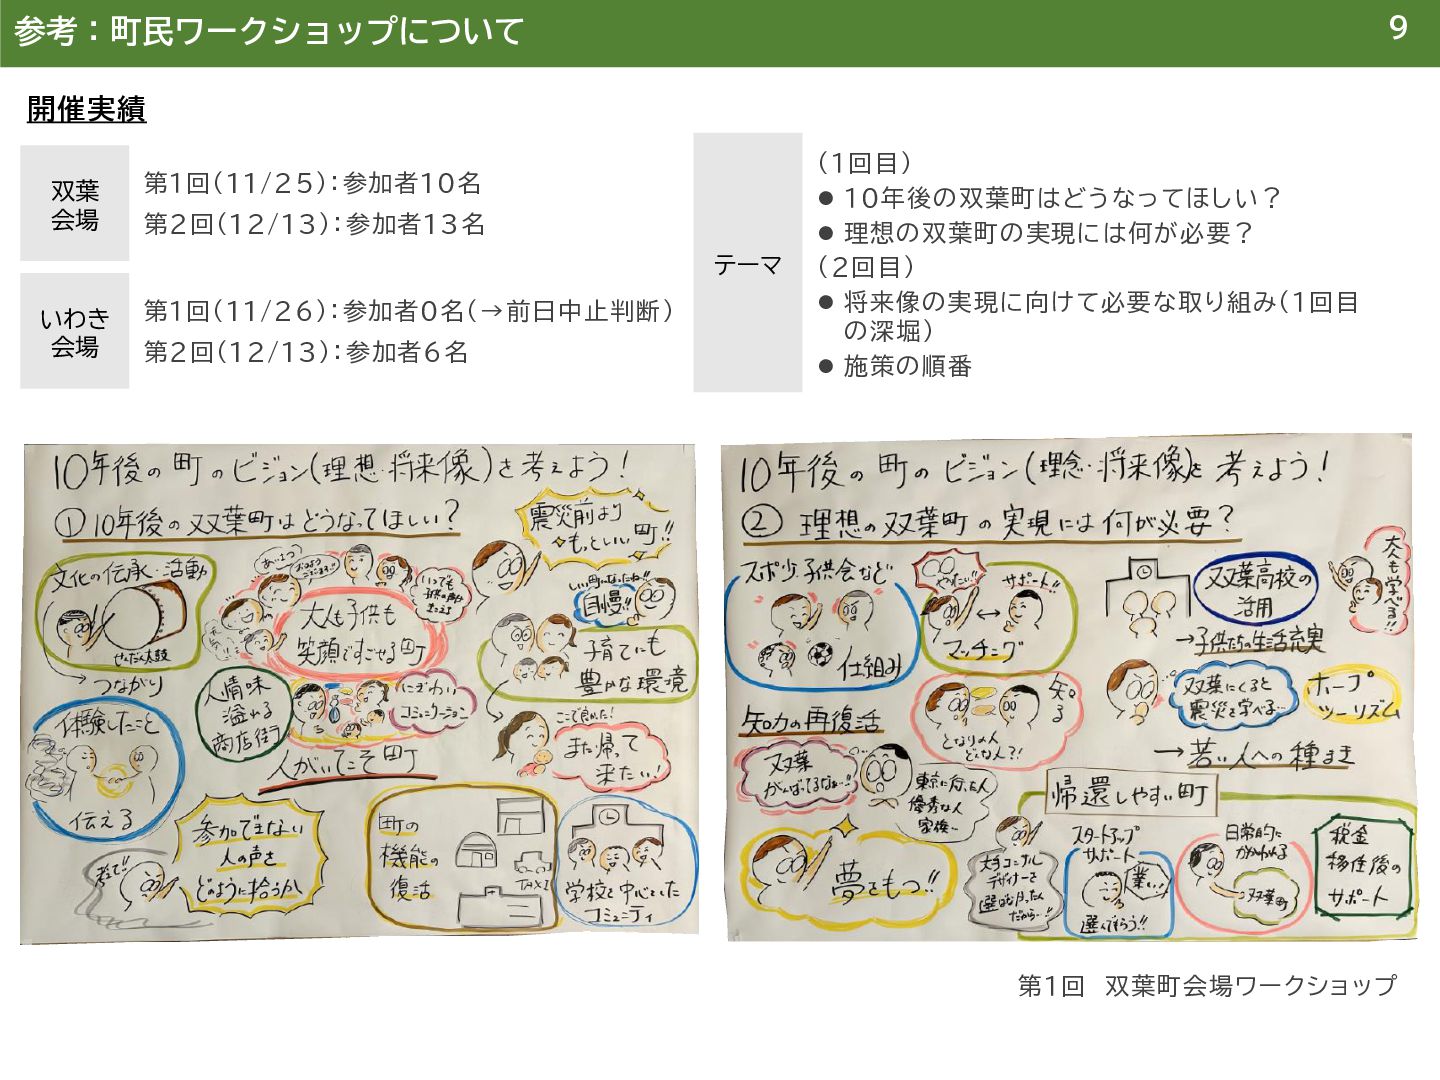 参考：町民ワークショップについて
9
開催実績
双葉
会場
第1回（11/25）：参加者10名
第2回（12/13）：参加者13名
いわき
会場
第1回（11/26）：参加者0名（→前日中止判断）
第2回（12/13）：参加者6名
テーマ
（1回目）
● 10年後の双葉町はどうなってほしい？
● 理想の双葉町の実現には何が必要？
（2回目）
● 将来像の実現に向けて必要な取り組み（1回目
の深堀）
● 施策の順番
10年後の町のビジョン(理想・将来像)を考えよう!
① 10年後の双葉町はどうなってほしい?
震災前より
もっといい町!!
文化の伝承・活動
せんだん太鼓
→つながり
あいさつ
おはよう
ございます!!
いつでも
大人も子供も
笑顔ですごせる町
自慢!!
子育てにも
豊かな環境
体験したこと
伝える
人情味
溢れる
商店街
にぎわい
コミュニケーション
人がいてこそ町
ここで良かった!
また帰って
来たい!
参加できない
人の声を
どのように拾うか
町の
機能の
復活
TAXI
学校を中心とした
コミュニティ
10年後の町のビジョン(理念・将来像)を考えよう!
② 理想の双葉町の実現には何が必要?
スポ少 子供会など
仕組み
やりたい!!
サポート!!
マッチング
双葉高校の
活用
→子供たちの生活充実
大人も
学べる!!
知力の再復活
となりの人
どんな人?!
知る
双葉にくると
震災を学べる…
ホープ
ツーリズム
→若い人への種まき
双葉
がんばってるなぁ…!!
東京に行った人
優秀な人
帰還しやすい町
夢をもつ!!
デザイナーを
だから…!!
スタートアップ
サポート
業…
選んでもらう!!
日常的に
かかわれる
双葉町
税金
移住後の
サポート
第1回　双葉町会場ワークショップ